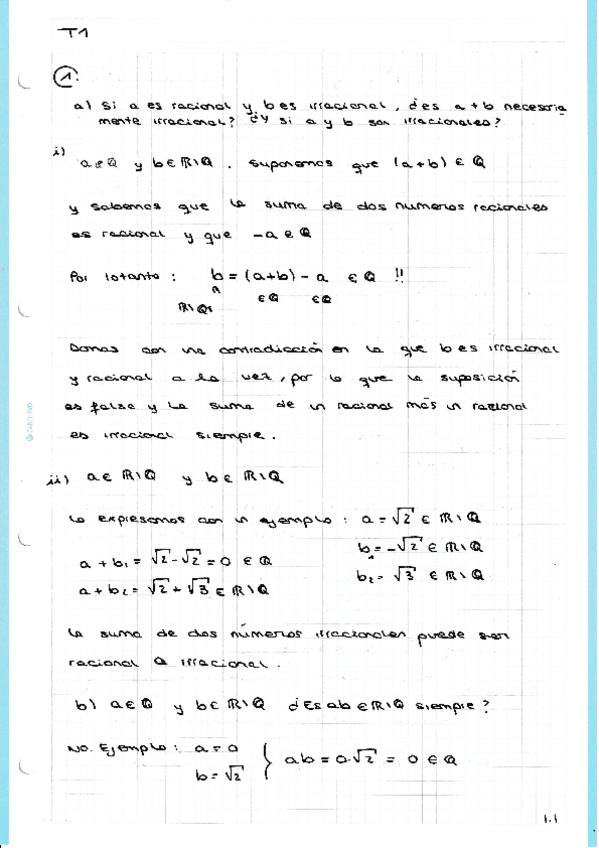 T1
1.
a) Si a es racional y b es irracional, ¿es a + b necesaria
mente irracional? ¿Y si a y b son irracionales?
i)
a ∈ ℚ y b ∈ ℝ\ℚ. Suponemos que (a+b) ∈ ℚ
y sabemos que la suma de dos numeros racionales
es racional y que -a ∈ ℚ
Por lo tanto: b = (a+b) - a ∈ ℚ !!
ℝ\ℚ ∈ℚ ∈ℚ
Damos con una contradicción en la que b es irracional
y racional a la vez, por lo que la suposición
es falsa y la suma de un racional más un racional
es irracional siempre.
ii) a ∈ ℝ\ℚ y b ∈ ℝ\ℚ
Lo expresamos con un ejemplo: a = √2 ∈ ℝ\ℚ
b₁ = -√2 ∈ ℝ\ℚ
a + b₁ = √2 - √2 = 0 ∈ ℚ
b₂ = √3 ∈ ℝ\ℚ
a + b₂ = √2 + √3 ∈ ℝ\ℚ
La suma de dos números irracionales puede ser
racional o irracional.
b) a ∈ ℚ y b ∈ ℝ\ℚ ¿Es ab ∈ ℝ\ℚ siempre?
No. Ejemplo: a = 0
b = √2 } ab = 0·√2 = 0 ∈ ℚ
1.1